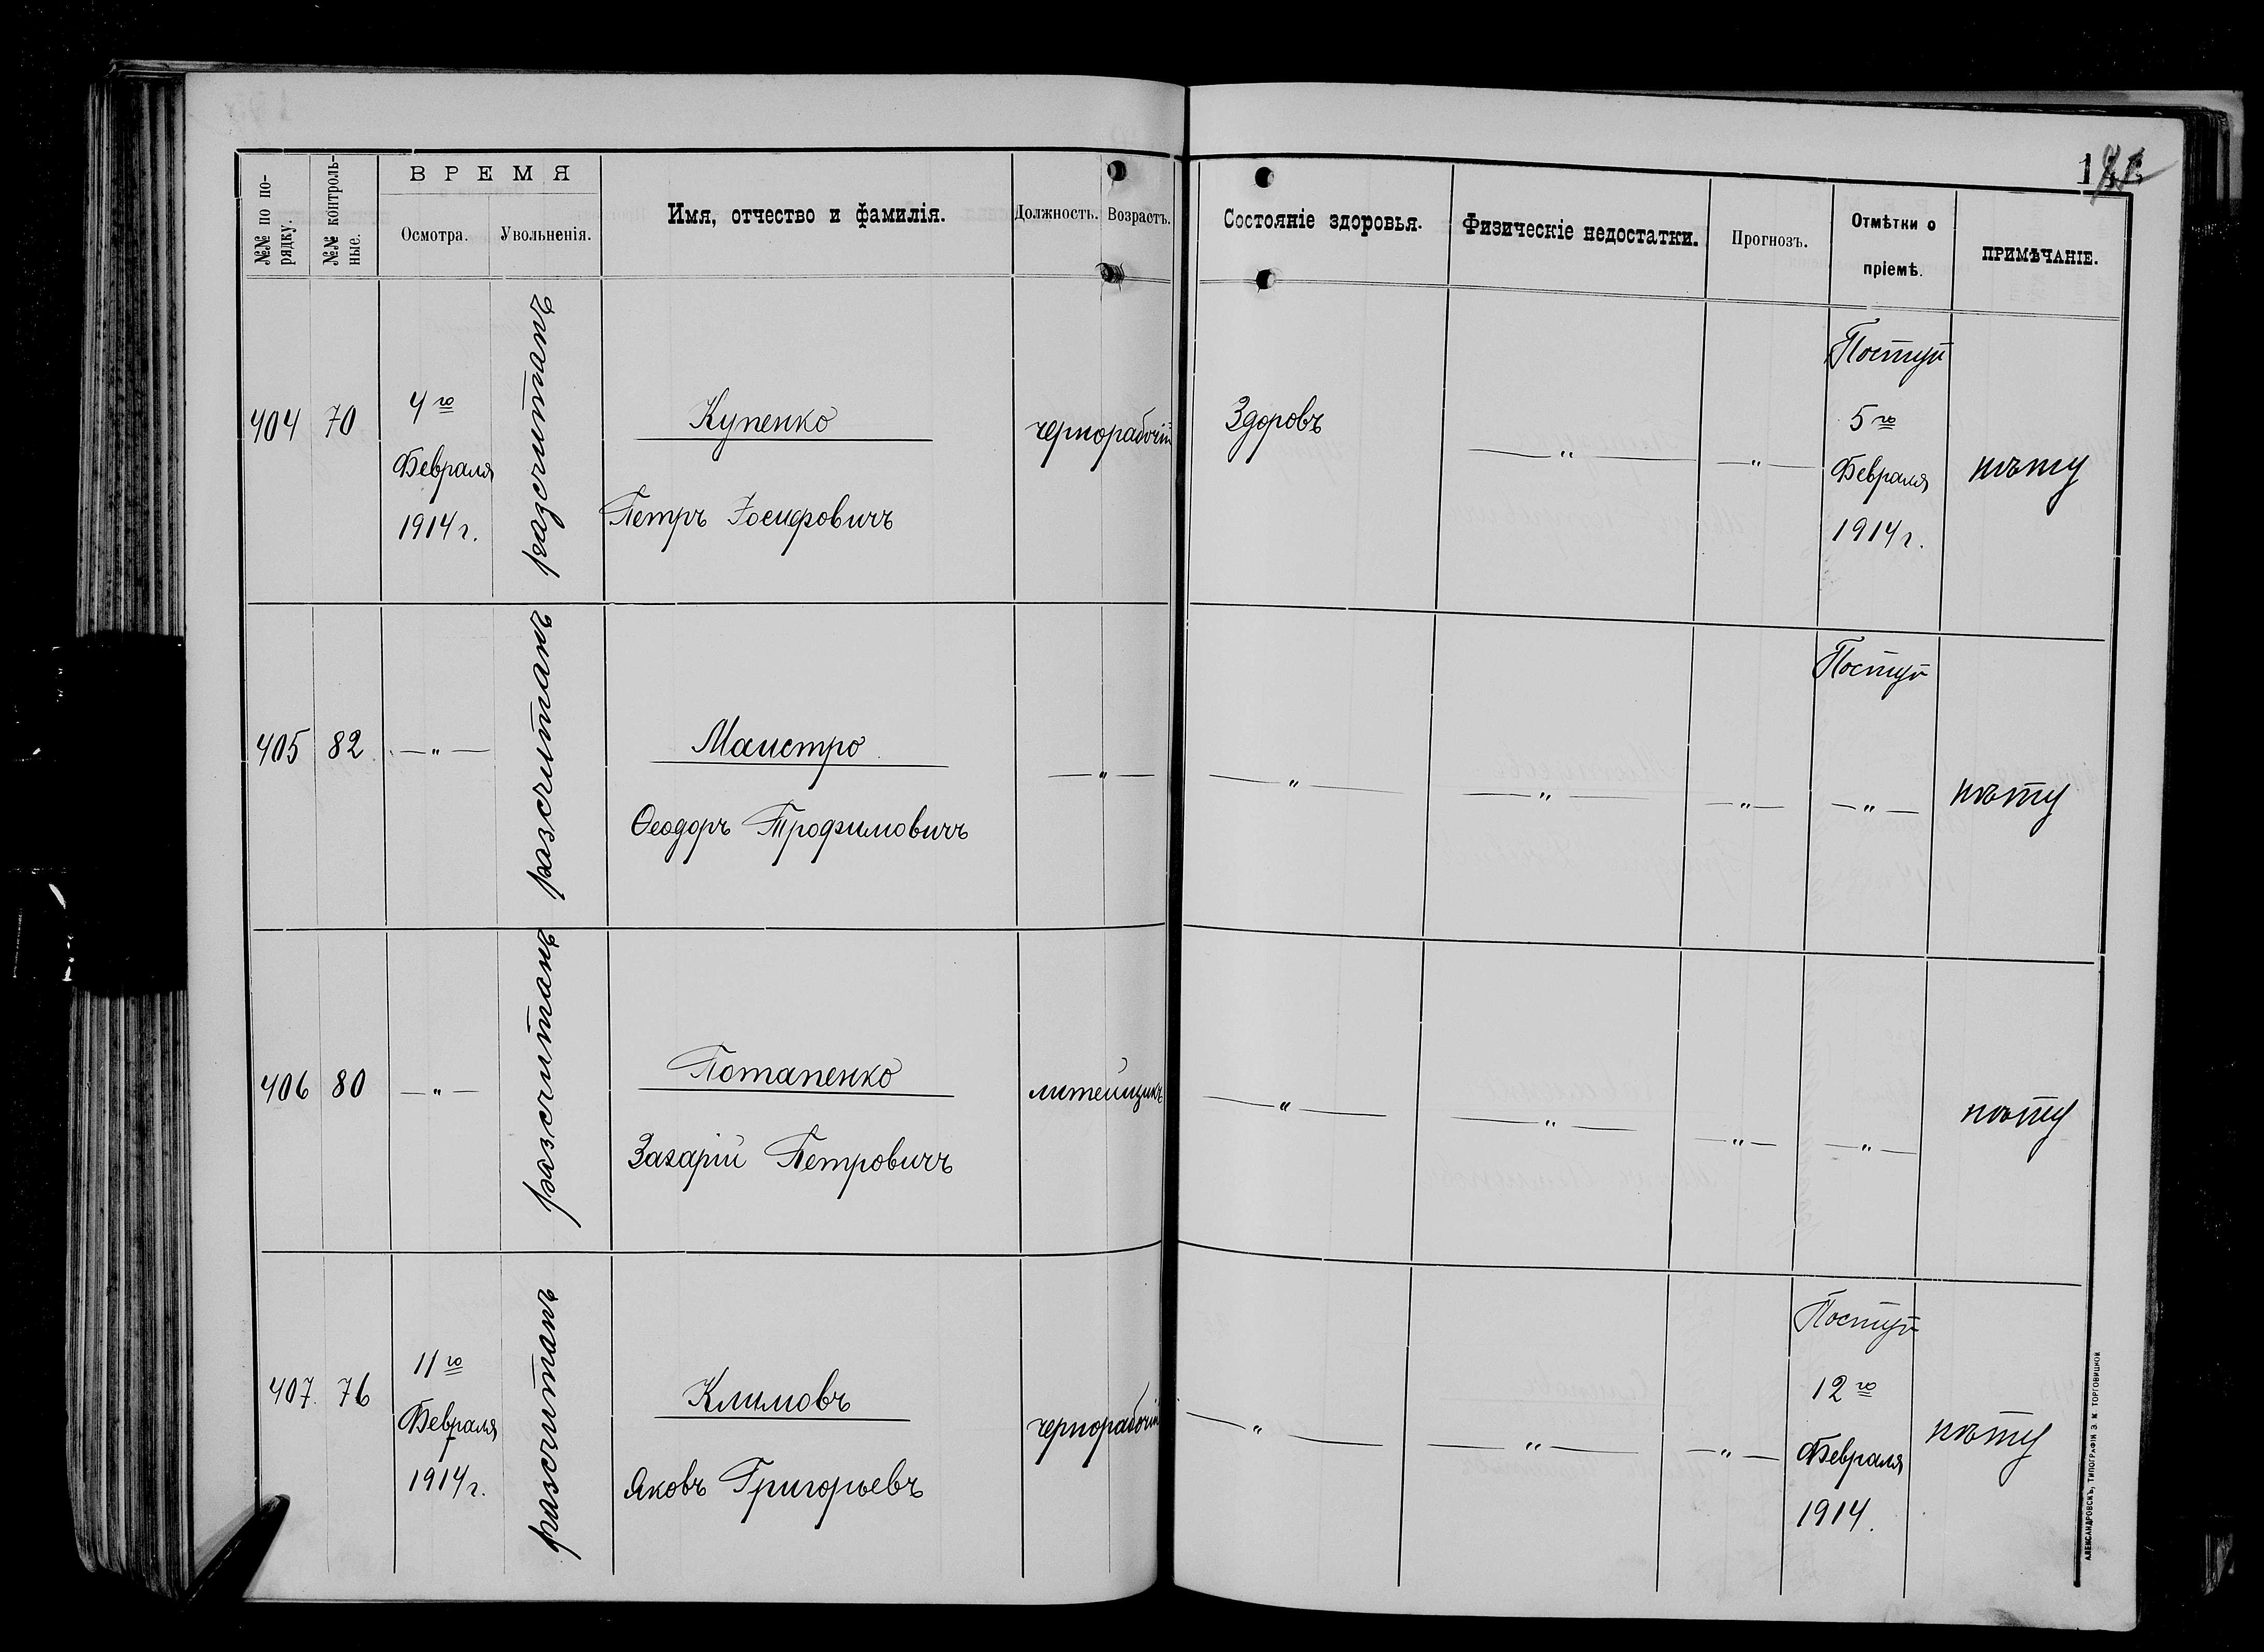 №№ по по-
рядку.
№№ контроль-
ные.
ВРЕМЯ
Осмотра.
Увольненія.
Имя, отчество и фамилія.
Должность.
Возрастъ.
Состояніе здоровья.
Физическіе недостатки.
Прогнозъ.
Отмѣтки о
пріемѣ.
ПРИМѢЧАНІЕ.
404 70
4го
Февраля
1914 г.
разсчитанъ
Купенко
Петръ Іосифовичъ
чернорабочій
Здоровъ
— " —
— " —
Поступ
5го
Февраля
1914 г.
нѣту
405 82
— " —
разсчитанъ
Маистро
Ѳеодоръ Трофимовичъ
— " —
— " —
— " —
— " —
Поступ
— " —
нѣту
406 80
— " —
разсчитанъ
Потапенко
Захарій Петровичъ
литейщикъ
— " —
— " —
— " —
— " —
нѣту
407. 76
11го
Февраля
1914 г.
разсчитанъ
Климовъ
Яковъ Григорьевъ
чернорабочій
— " —
— " —
— " —
Поступ
12го
Февраля
1914.
нѣту
АЛЕКСАНДРОВСКЪ, ТИПОГРАФІЯ Э. М. ТОРГОВИЦКОЙ